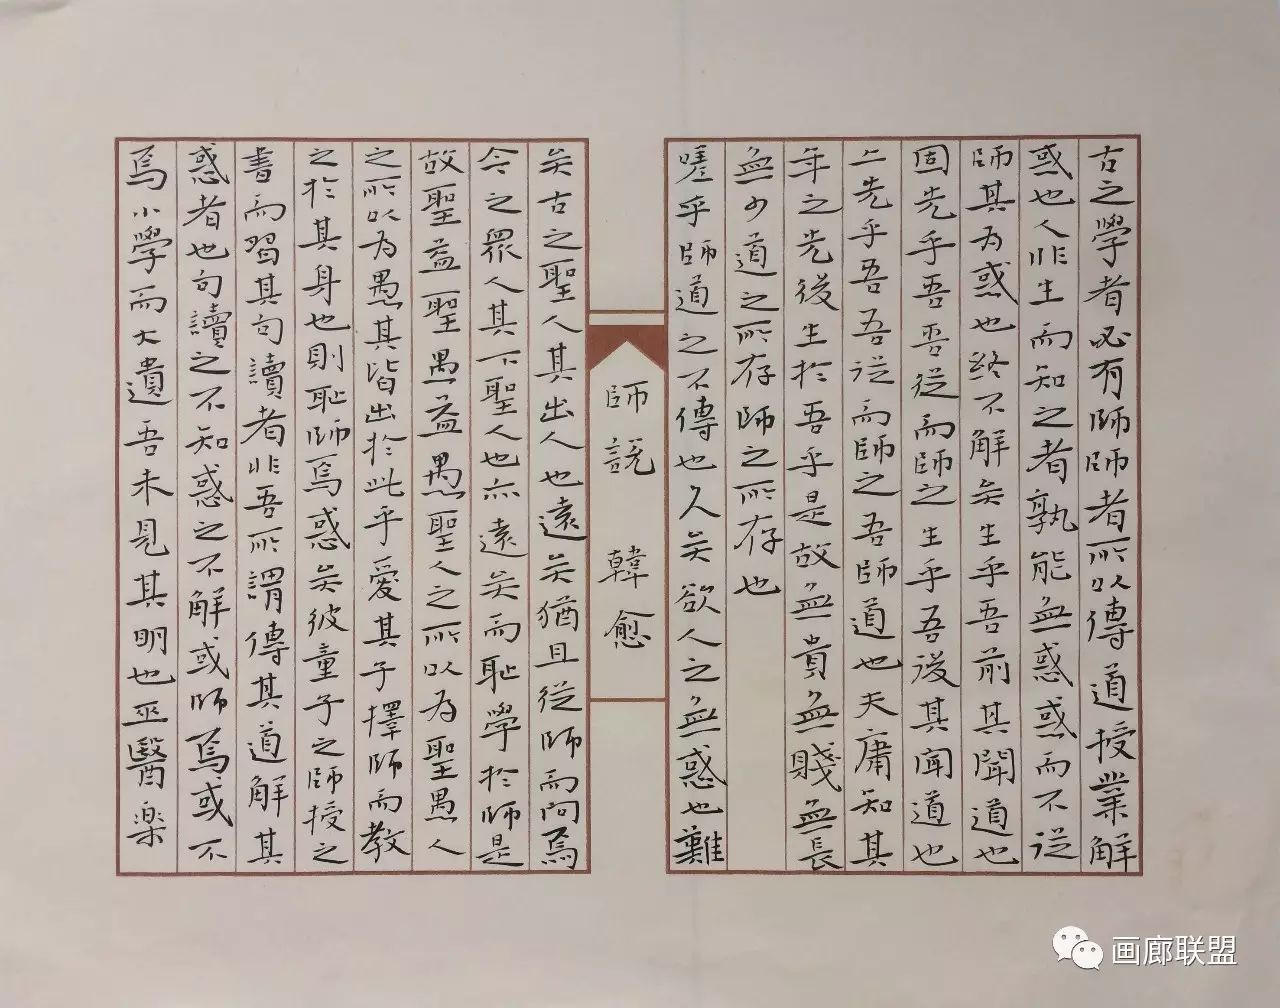 古之學者必有師師者所以傳道授業解
或也人非生而知之者孰能無惑惑而不從
師其為惑也終不解矣生乎吾前其聞道也
固先乎吾吾從而師之生乎吾後其聞道也
上先乎吾吾從而師之吾師道也夫庸知其
年之先後生於吾乎是故無貴無賤無長
無少道之所存師之所存也
嗟乎師道之不傳也久矣欲人之無惑也難
師說 韓愈
矣古之聖人其出人也遠矣猶且從師而問焉
今之眾人其下聖人也亦遠矣而恥學於師是
故聖益聖愚益愚聖人之所以為聖愚人
之所以為愚其皆出於此乎愛其子擇師而教
之於其身也則恥師焉惑矣彼童子之師授之
書而習其句讀者非吾所謂傳其道解其
惑者也句讀之不知惑之不解或師焉或不
焉小學而大遺吾未見其明也巫醫楽
画廊联盟